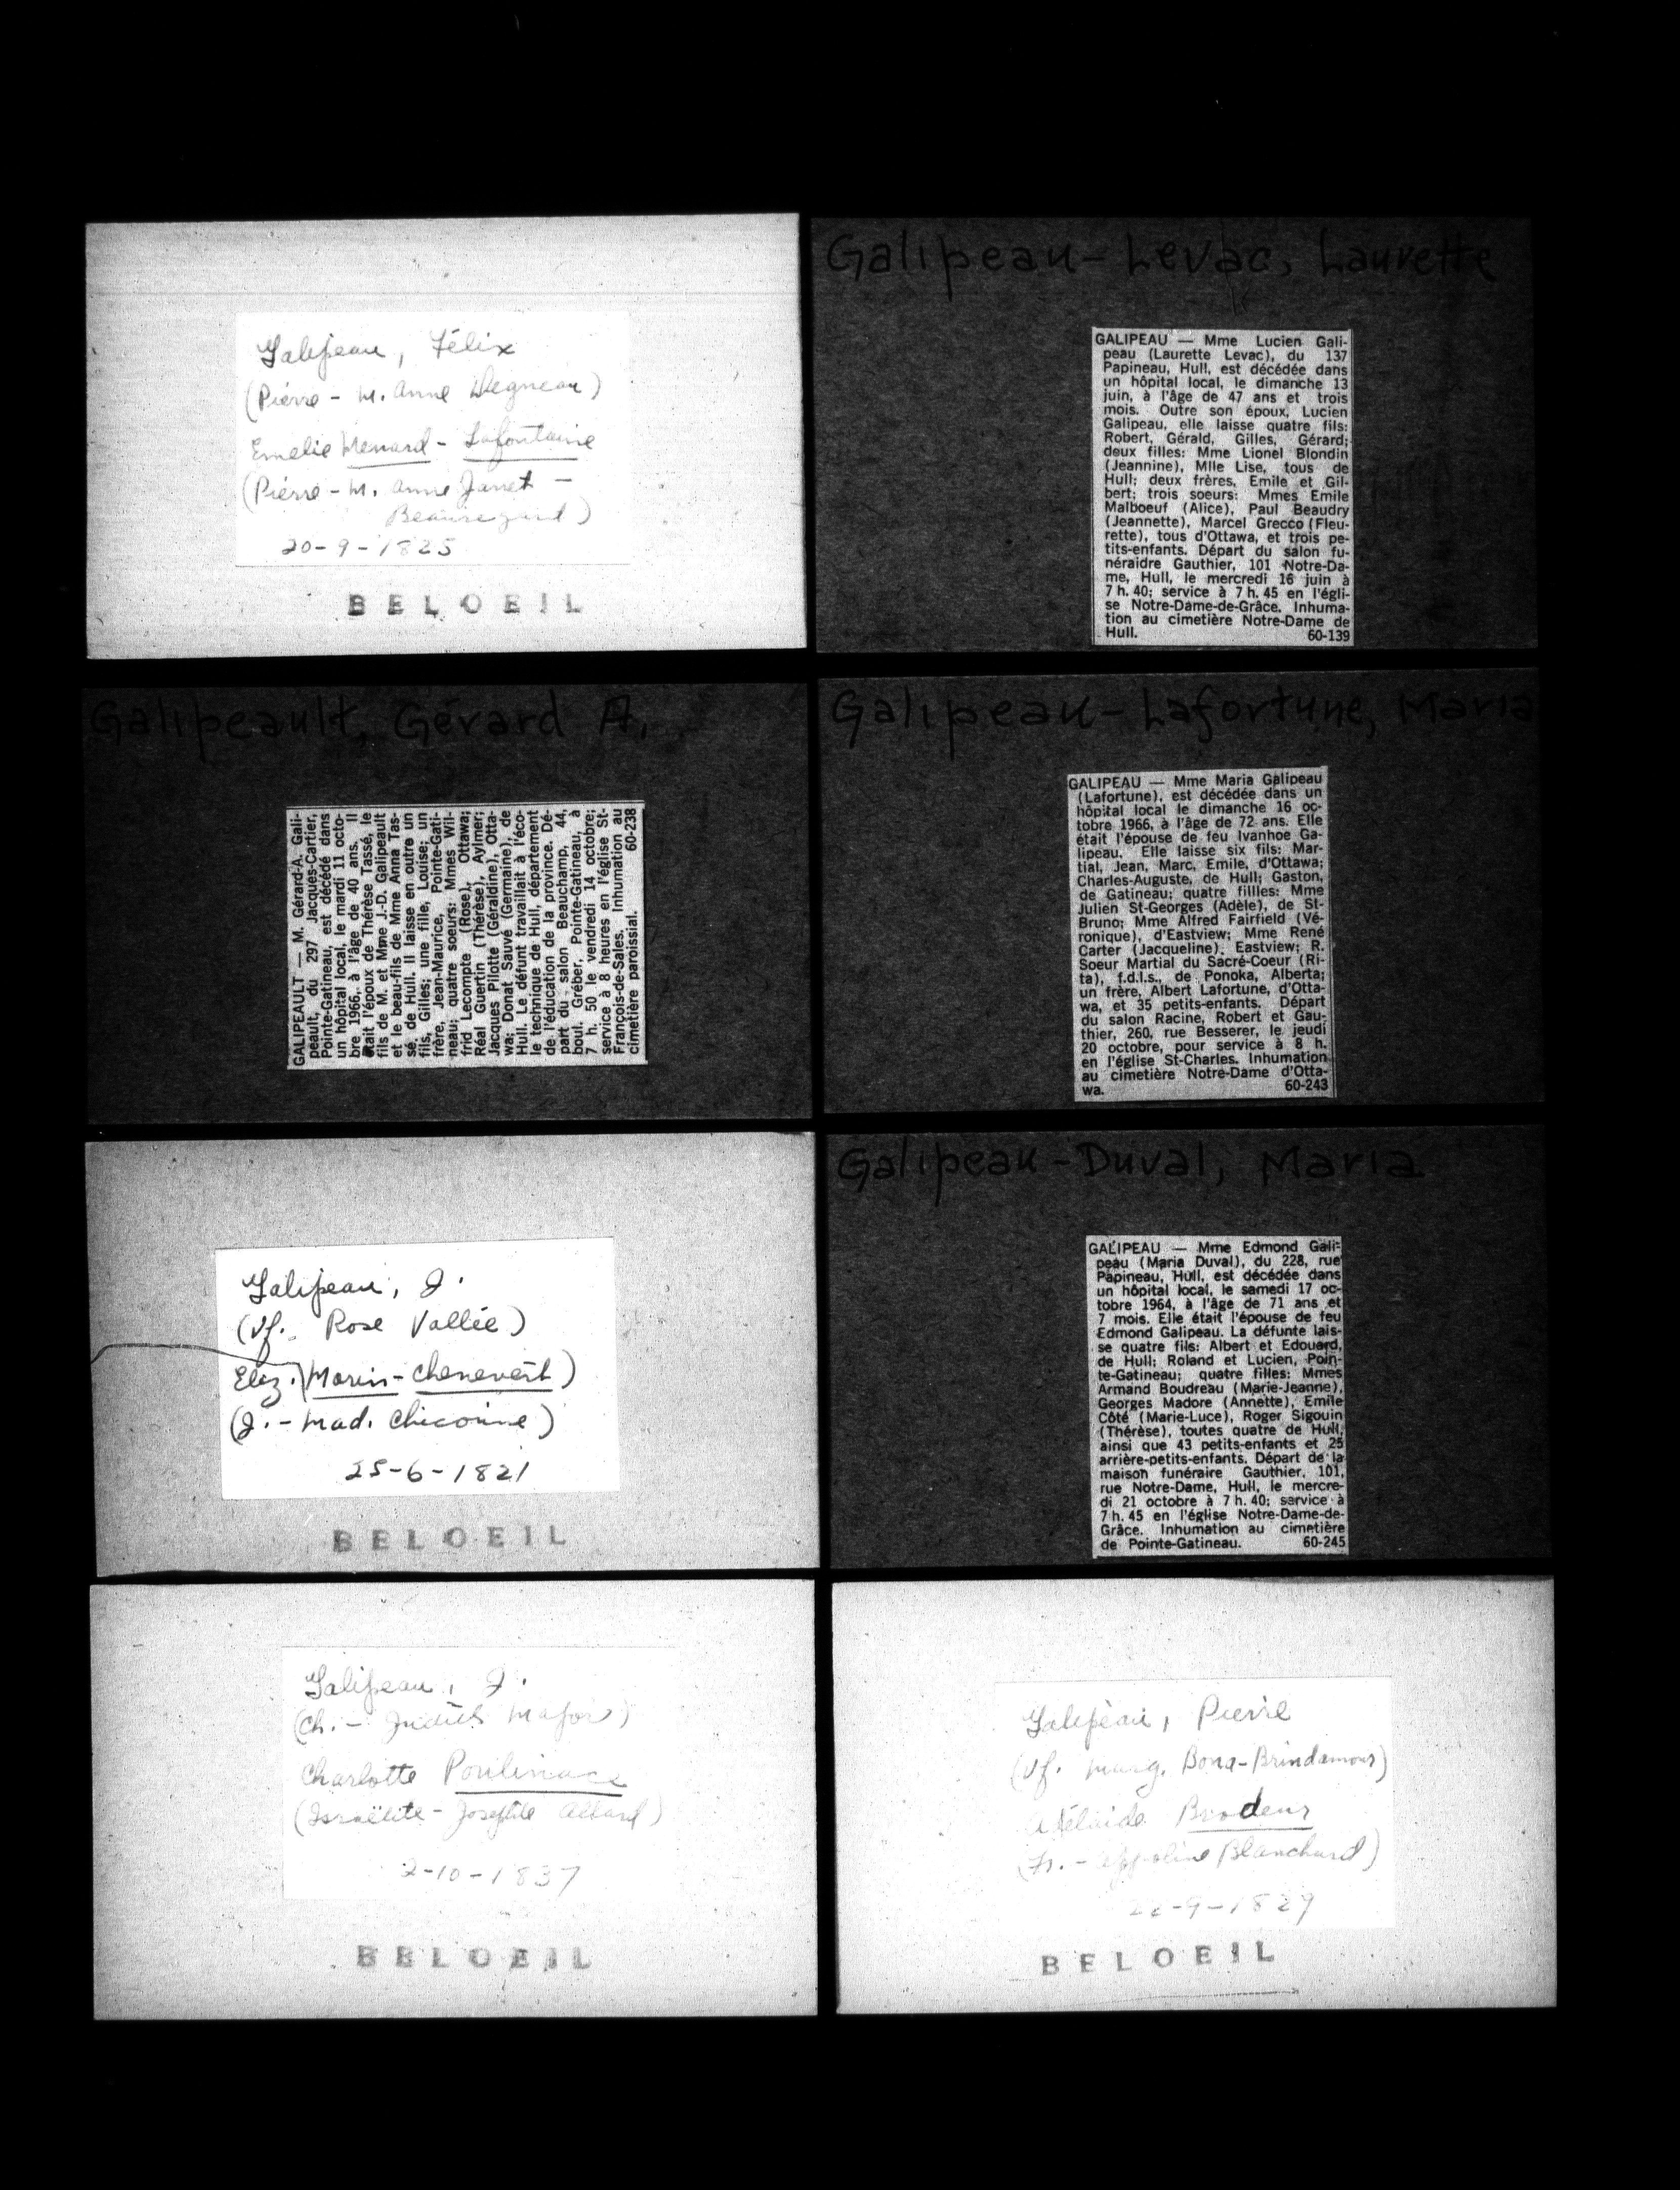 Galipeau, Félix
(Pierre - M. Anne Degneau)
Emelie Menard - Lafontaine
(Pierre - M. Anne Jarret -
Beauregard)
20-9-1825
BELOEIL
Galipeau-Levac, Laurette
GALIPEAU — Mme Lucien Gali-
peau (Laurette Levac), du 137
Papineau, Hull, est décédée dans
un hôpital local, le dimanche 13
juin, à l'âge de 47 ans et trois
mois. Outre son époux, Lucien
Galipeau, elle laisse quatre fils:
Robert, Gérald, Gilles, Gérard;
deux filles: Mme Lionel Blondin
(Jeannine), Mlle Lise, tous de
Hull; deux frères, Emile et Gil-
bert; trois soeurs: Mmes Emile
Malboeuf (Alice), Paul Beaudry
(Jeannette), Marcel Grecco (Fleu-
rette), tous d'Ottawa, et trois pe-
tits-enfants. Départ du salon fu-
néraidre Gauthier, 101 Notre-Da-
me, Hull, le mercredi 16 juin à
7 h. 40; service à 7 h. 45 en l'égli-
se Notre-Dame-de-Grâce. Inhuma-
tion au cimetière Notre-Dame de
Hull. 60-139
Galipeault, Gérard A.
GALIPEAULT — M. Gérard-A. Gali-
peault, du 297 Jacques-Cartier,
Pointe-Gatineau, est décédé dans
un hôpital local, le mardi 11 octo-
bre 1966, à l'âge de 40 ans. Il
était l'époux de Thérèse Tassé, le
fils de M. et Mme J.-D. Galipeault
et le beau-fils de Mme Anna Tas-
sé, de Hull. Il laisse en outre un
fils, Gilles; une fille, Louise; un
frère, Jean-Maurice, Pointe-Gati-
neau; quatre soeurs: Mmes Wil-
frid Lecompte (Rose), Ottawa;
Réal Guertin (Thérèse), Aylmer;
Jacques Pilotte (Géraldine), Otta-
wa; Donat Sauvé (Germaine), de
Hull. Le défunt travaillait à l'éco-
le technique de Hull, département
de l'éducation de la province. Dé-
part du salon Beauchamp, 44,
boul. Gréber, Pointe-Gatineau, à
7 h. 50 le vendredi 14 octobre;
service à 8 heures en l'église St-
François-de-Sales. Inhumation au
cimetière paroissial. 60-238
Galipeau-Lafortune, Maria
GALIPEAU — Mme Maria Galipeau
(Lafortune), est décédée dans un
hôpital local le dimanche 16 oc-
tobre 1966, à l'âge de 72 ans. Elle
était l'épouse de feu Ivanhoe Ga-
lipeau. Elle laisse six fils: Mar-
tial, Jean, Marc, Emile, d'Ottawa;
Charles-Auguste, de Hull; Gaston,
de Gatineau; quatre fillles: Mme
Julien St-Georges (Adèle), de St-
Bruno; Mme Alfred Fairfield (Vé-
ronique), d'Eastview; Mme René
Carter (Jacqueline), Eastview; R.
Soeur Martial du Sacré-Coeur (Ri-
ta), f.d.l.s., de Ponoka, Alberta;
un frère, Albert Lafortune, d'Otta-
wa, et 35 petits-enfants. Départ
du salon Racine, Robert et Gau-
thier, 260, rue Besserer, le jeudi
20 octobre, pour service à 8 h.
en l'église St-Charles. Inhumation
au cimetière Notre-Dame d'Otta-
wa. 60-243
Galipeau, J.
(Vf. Rose Vallée)
Elez. (Morin - Chenevert)
(J. - Mad. Chicoine)
25-6-1821
BELOEIL
Galipeau-Duval, Maria
GALIPEAU — Mme Edmond Gali-
peau (Maria Duval), du 228, rue
Papineau, Hull, est décédée dans
un hôpital local, le samedi 17 oc-
tobre 1964, à l'âge de 71 ans et
7 mois. Elle était l'épouse de feu
Edmond Galipeau. La défunte lais-
se quatre fils: Albert et Edouard,
de Hull; Roland et Lucien, Poin-
te-Gatineau; quatre filles: Mmes
Armand Boudreau (Marie-Jeanne),
Georges Madore (Annette), Emile
Côté (Marie-Luce), Roger Sigouin
(Thérèse), toutes quatre de Hull,
ainsi que 43 petits-enfants et 25
arrière-petits-enfants. Départ de la
maison funéraire Gauthier, 101,
rue Notre-Dame, Hull, le mercre-
di 21 octobre à 7 h. 40; service à
7 h. 45 en l'église Notre-Dame-de-
Grâce. Inhumation au cimetière
de Pointe-Gatineau. 60-245
Galipeau, J.
(Ch. - Judith Major)
Charlotte
(Israëlite - Josephte Allard)
2-10-1837
BELOEIL
Galipeau, Pierre
(Vf. Marg. Bona-Brindamour)
Adélaide Brodeur
(Fr. - Appoline Blanchard)
-9-1829
BELOEIL